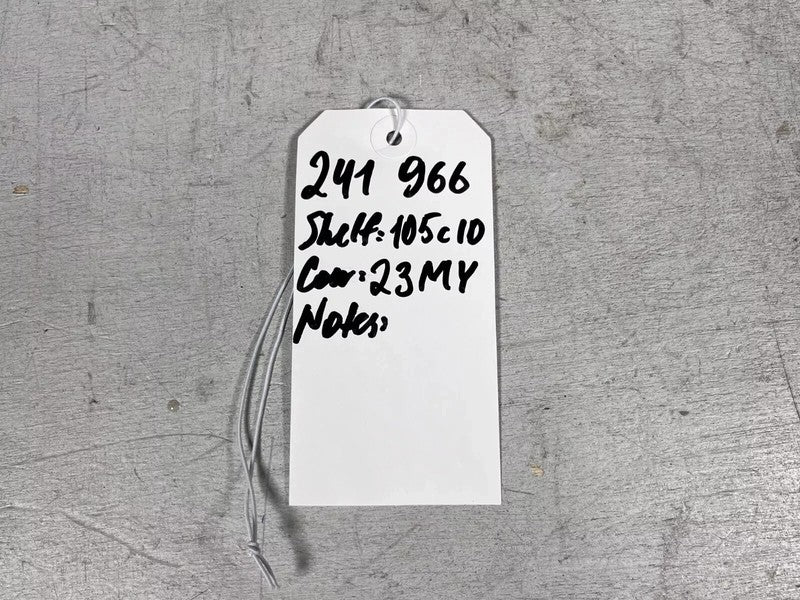 241 966
Shelf: 105c10
Car: 23MY
Notes: